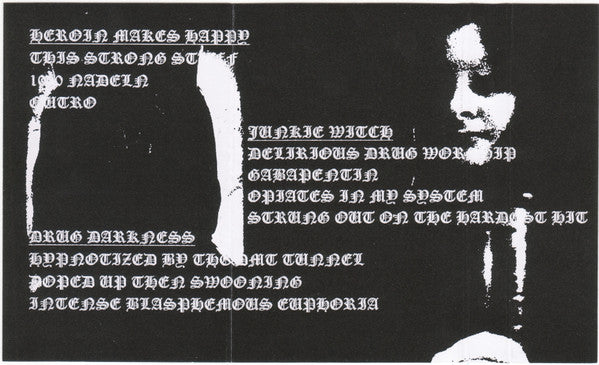 HEROIN MAKES HAPPY
THIS STRONG
NADELN
OUTRO
JUNKIE WITCH
DELIRIOUS DRUG WORSHIP
GABAPENTIN
OPIATES IN MY SYSTEM
STRUNG OUT ON THE HARDEST HIT
DRUG DARKNESS
HYPNOTIZED BY THE DMT TUNNEL
DOPED UP THEN SWOONING
INTENSE BLASPHEMOUS EUPHORIA